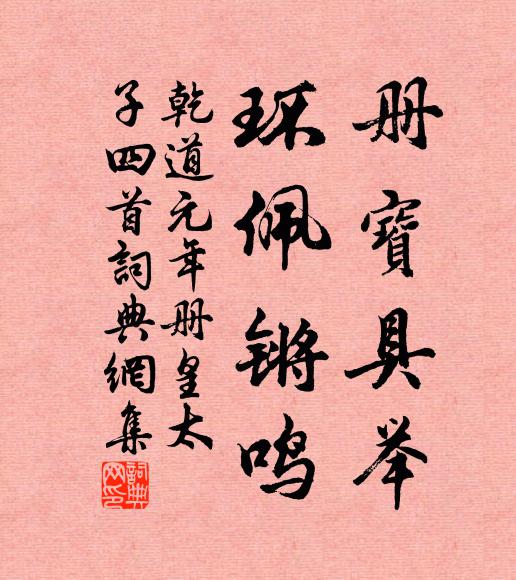 册寶具举
环佩锵鸣
乾道元年册皇太
子四首詞典網集
詞典网印